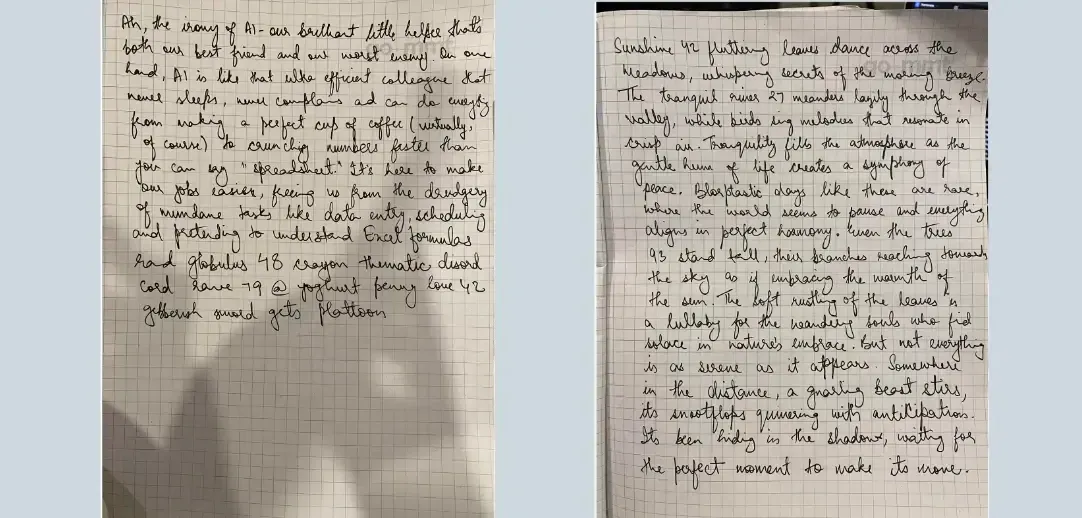 Ah, the irony of AI - our brilliant little helper that's
both our best friend and our worst enemy. On one
hand, AI is like that ultra efficient colleague that
never sleeps, never complains ad can do everything
from making a perfect cup of coffee (virtually,
of course) to crunching numbers faster than
you can say "spreadsheet." It's here to make
our jobs easier, freeing us from the drudgery
of mundane tasks like data entry, scheduling
and pretending to understand Excel formulas
rand globulus 48 crayon thematic disord
cord rave 79 @ yoghurt penny love 42
gibberish sword gets plattoon
Sunshine 42 fluttering leaves dance across the
meadows, whispering secrets of the morning breeze.
The tranquil river 27 meanders lazily through the
valley, while birds sing melodies that resonate in
crisp air. Tranquility fills the atmosphere as the
gentle hum of life creates a symphony of
peace. Blorptastic days like these are rare,
where the world seems to pause and everything
aligns in perfect harmony. Even the trees
93 stand tall, their branches reaching towards
the sky as if embracing the warmth of
the sun. The soft rustling of the leaves is
a lullaby for the wandering souls who find
solace in nature's embrace. But not everything
is as serene as it appears. Somewhere
in the distance, a gnarling beast stirs,
its snootflops quivering with anticipation.
Its been hiding in the shadows, waiting for
the perfect moment to make its move.